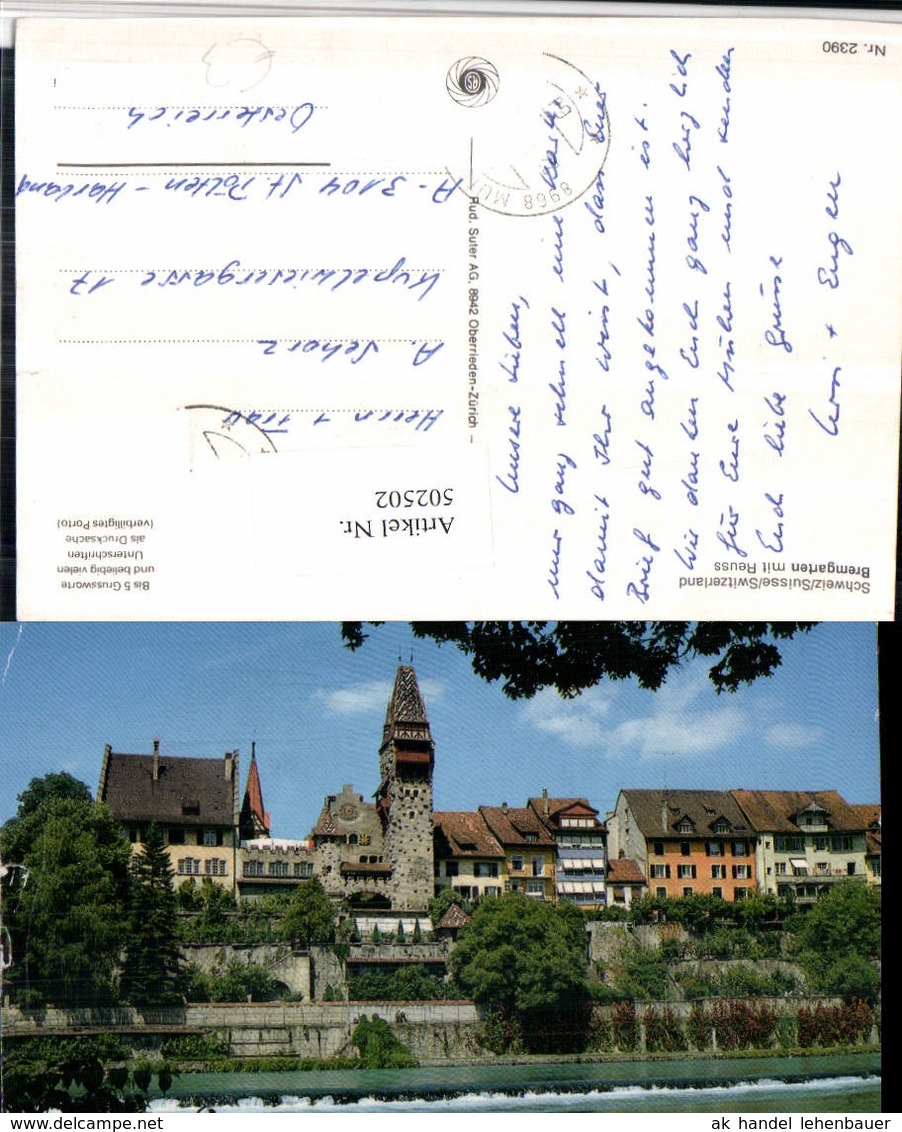 Schweiz/Suisse/Switzerland
Bremgarten mit Reuss
Nr. 2390
Unsere Lieben,
nur ganz schnell eine Karte
damit Ihr wisst, dass Euer
Brief gut angekommen ist.
Wir danken Euch ganz herzlich
für Eure Mühen und senden
Euch liebe Grüsse
+ Eugen
Rud. Suter AG, 8942 Oberrieden-Zürich –
8968 MU
SB
Bis 5 Grussworte
und beliebig vielen
Unterschriften
als Drucksache
(verbilligtes Porto)
Artikel Nr.
502502
Herrn + Frau
A. Schorz
Kupelwiesergasse 17
A-3104 St. Pölten - Harland
Oesterreich
ak handel lehenbauer